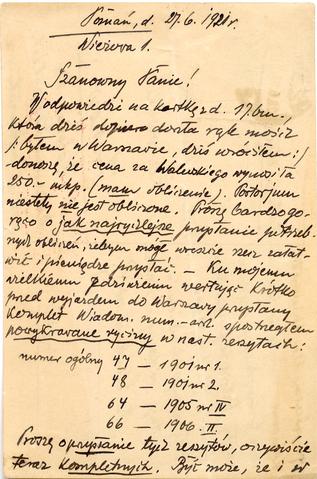 Poznań, d. 27.6.1921 r.
Wieżowa 1.
Szanowny Panie!
W odpowiedzi na kartkę z d. 17.bm.,
która dziś dopiero doszła rąk moich
/: byłem w Warszawie, dziś wróciłem :/
donoszę, że cena za Walewskiego wynosi
250.- mkp. (mam obliczenie). Portorjum
niestety nie jest obliczone. Proszę bardzo go-
rąco o jak najrychlejsze przysłanie potrzeb-
nych obliczeń, żebym mógł wreszcie rzecz załat-
wić i pieniądze przysłać. – Ku mojemu
wielkiemu zdziwieniu wertując krótko
przed wyjazdem do Warszawy przysłany
komplet Wiadom. num.-arch. spostrzegłem
powykrawane ryciny w nast. zeszytach:
numer ogólny 47 – 1901 nr 1.
48 – 1901 nr 2.
64 – 1905 nr IV
66 – 1906. II.
Proszę o przysłanie tych zeszytów, oczywiście
teraz kompletnych. Być może, że i w